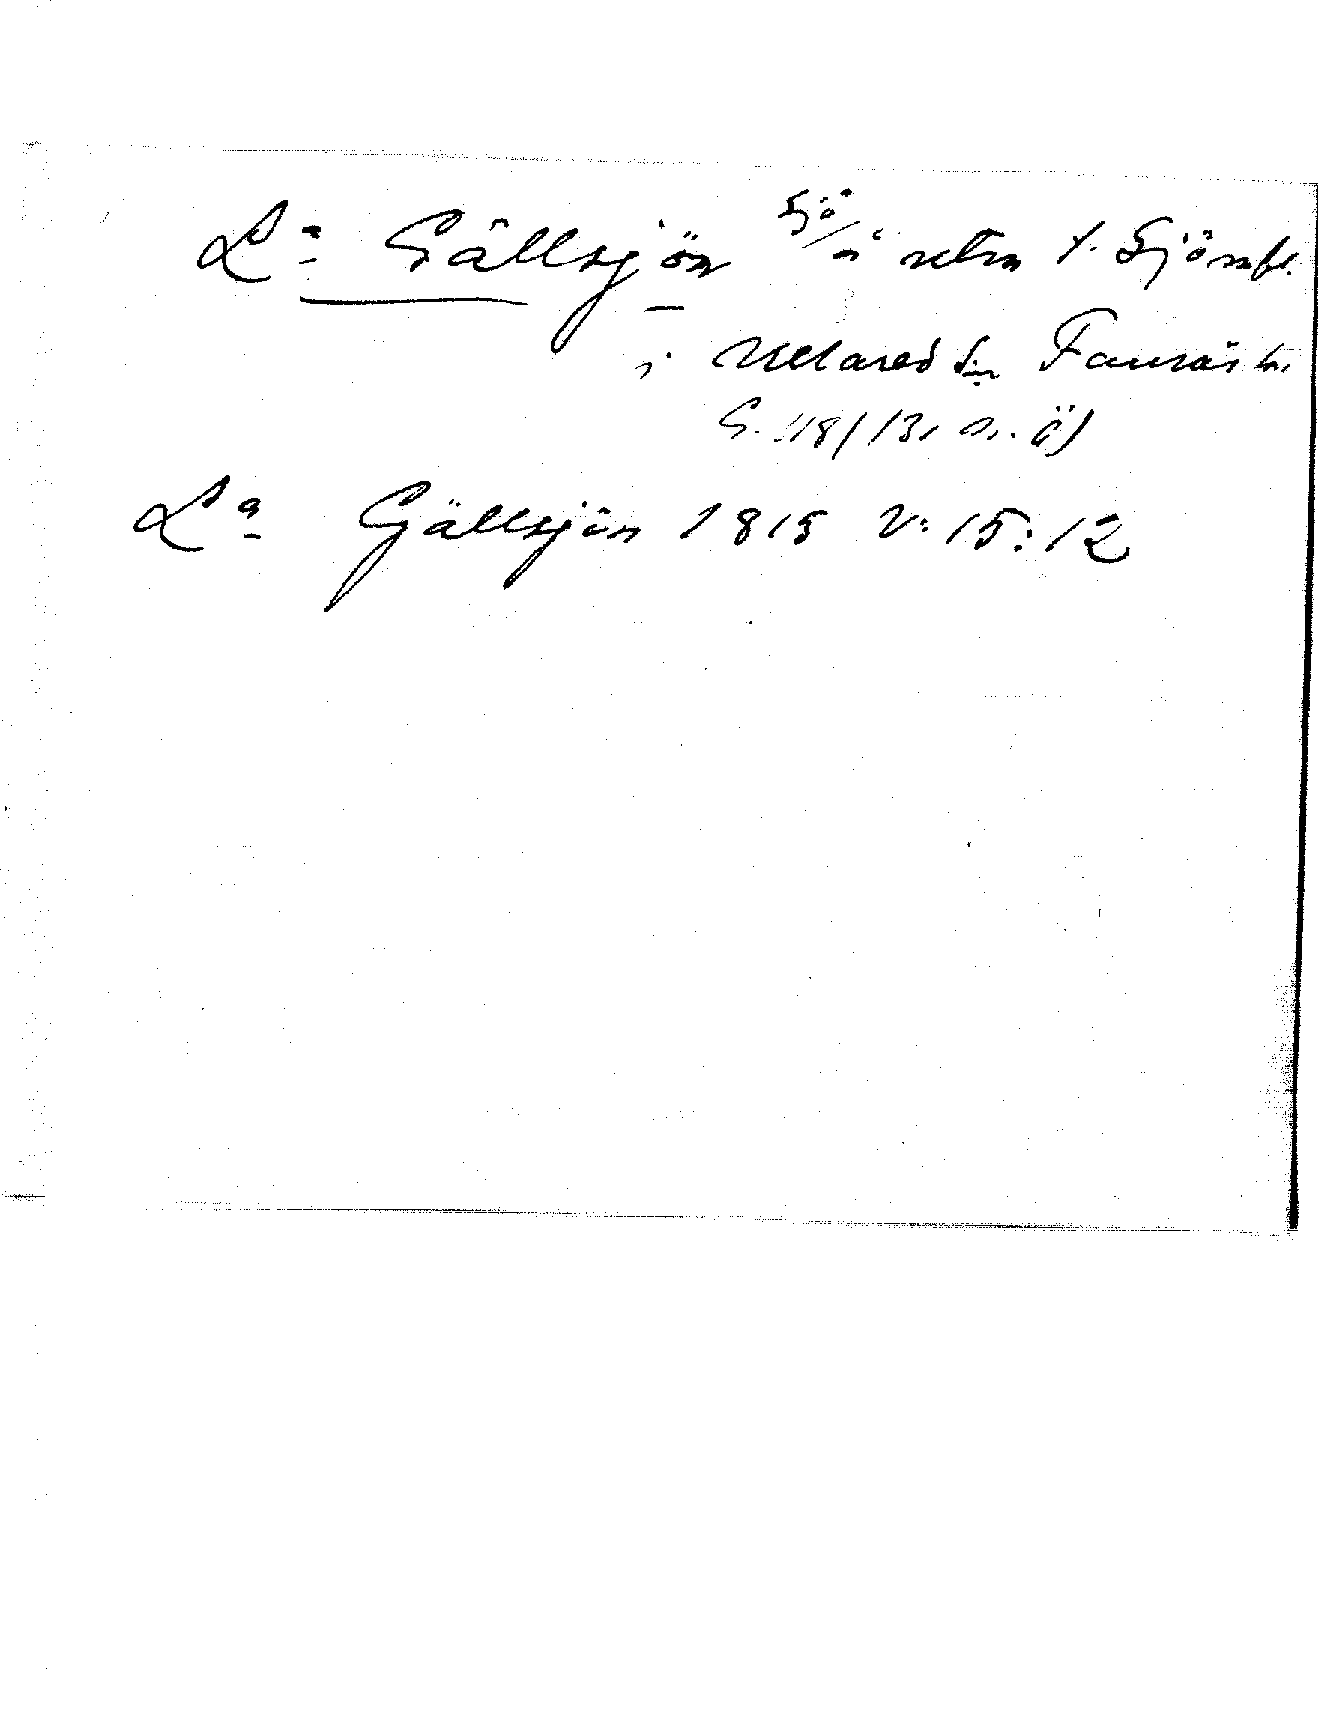 L:a Gällsjön Sjö å utm t. Sjönäs
i Ullared sn Faurås hd
G. 118/131 n. ö)
L:a Gällsjön 1815 V: 15: 12